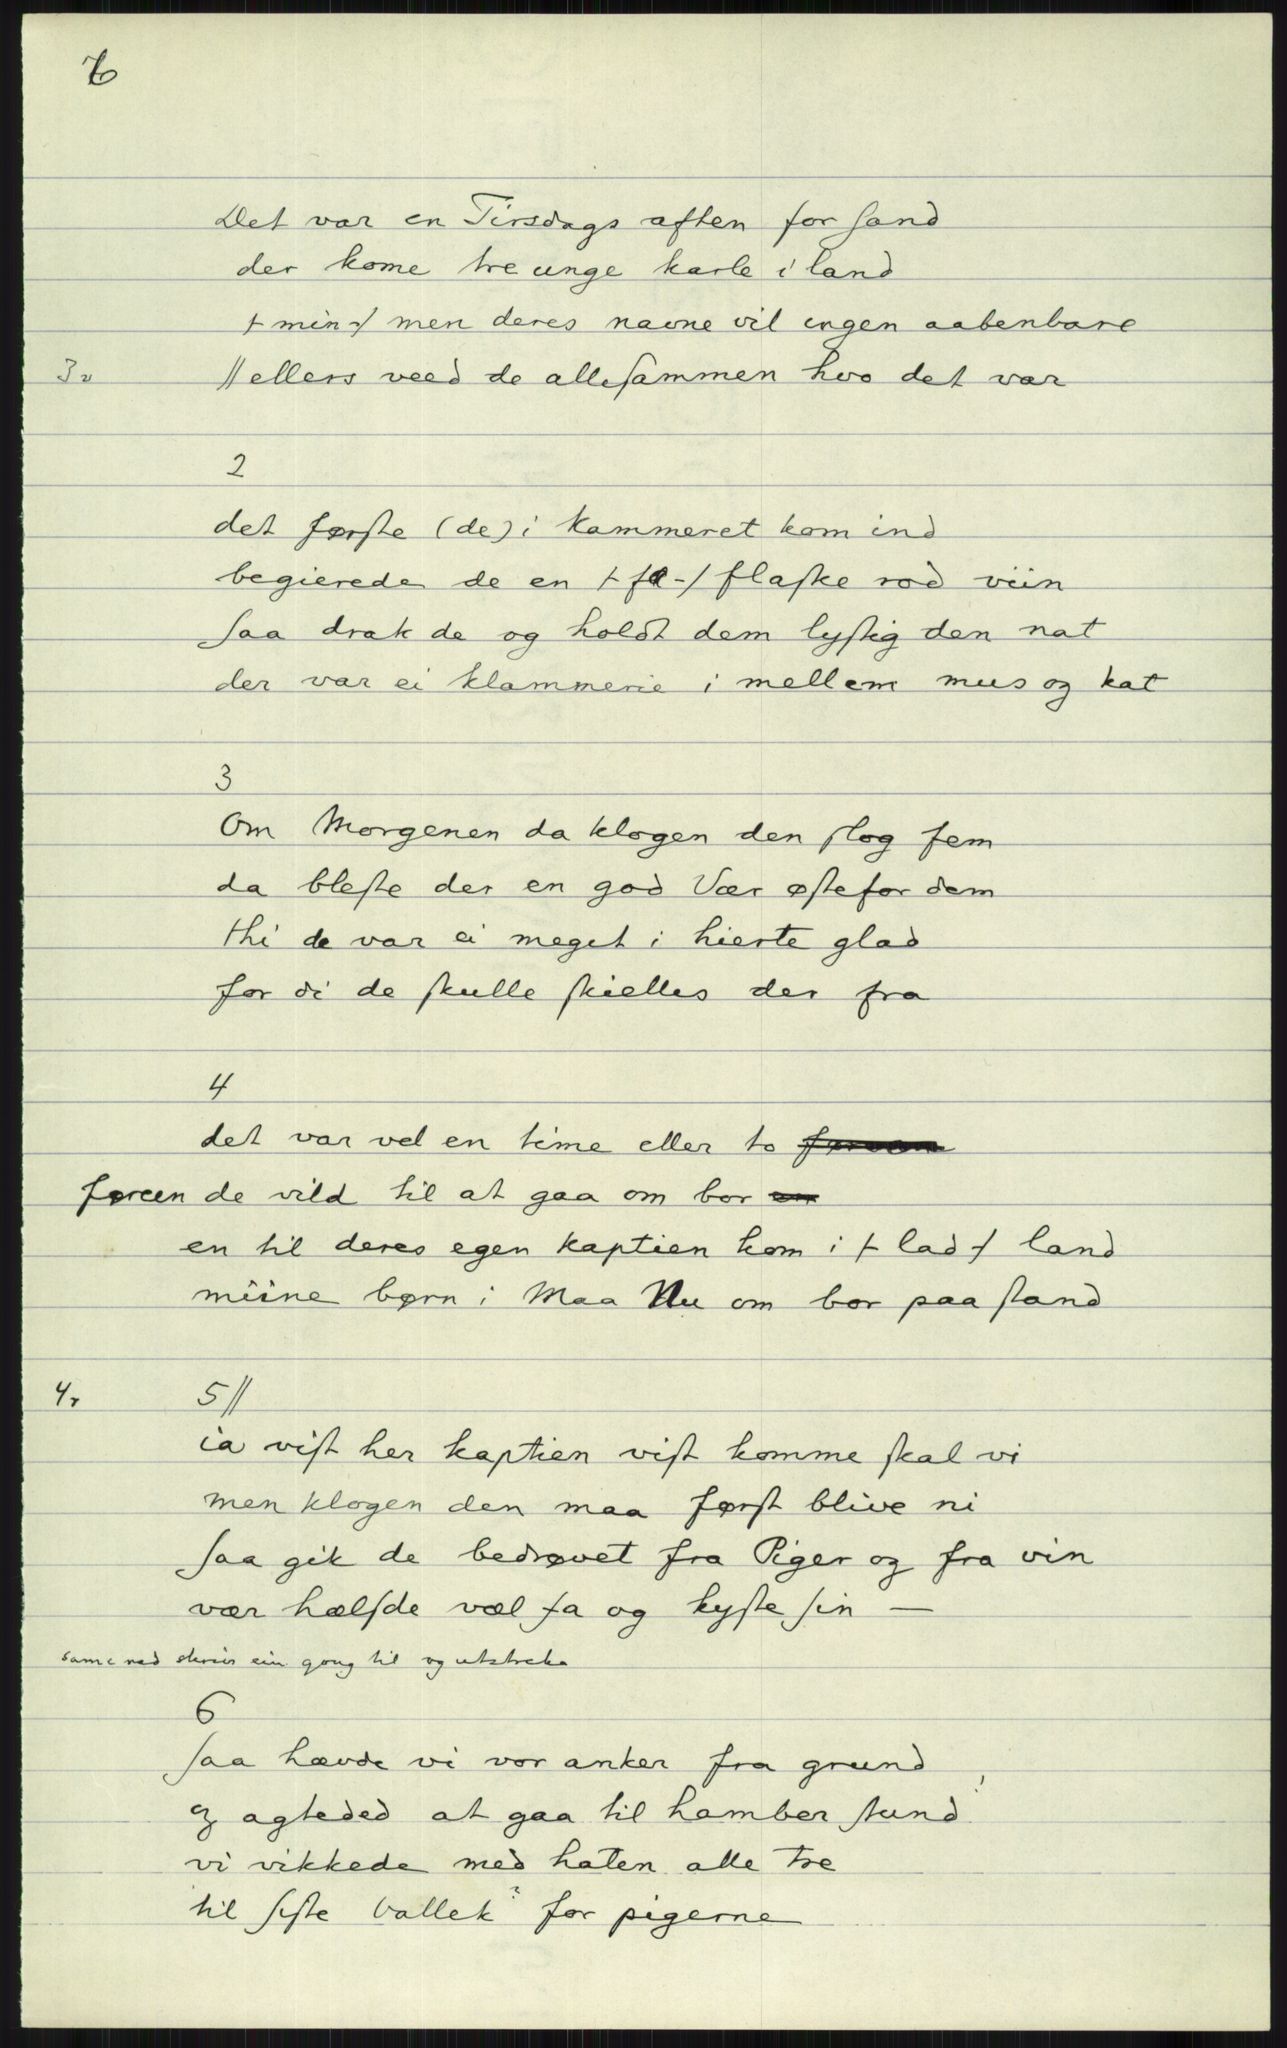 6
Det var en Tirsdags aften for sand
der kome tre unge karle i land
⊢ min ⊣ men deres navne vil ingen aabenbare
3v // ellers veed de allesammen hvo det var
2
det første (de) i kammeret kom ind
begierede de en ⊢ fl - ⊣ flaske rød viin
saa drak de og holdt dem lystig den nat
der var ei klammerie i mellem muus og kat
3
Om Morgenen da klogen den slog fem
da bleste der en god Vær øste for dem
thi de var ei meget i hierte glad
for di de skulle skielles der fra
4
det var vel en time eller to
føreen de vild til at gaa om bor
en til deres egen kaptien kom i ⊢ lad ⊣ land
miine børn i Maa Nu om bor paa stand
4r 5 //
ia vist her kaptien vist komme skal vi
men klogen den maa først blive ni
saa gik de bedrøvet fra Piger og fra vin
vær hælsde væl fa og kyste sin —
same rad skreiv ein gong til og utstreka
6
saa hævde vi vor anker fra grund
og agteded at gaa til hamber sund
vi vikkede med haten alle tre
til siste vallek ? for pigerne